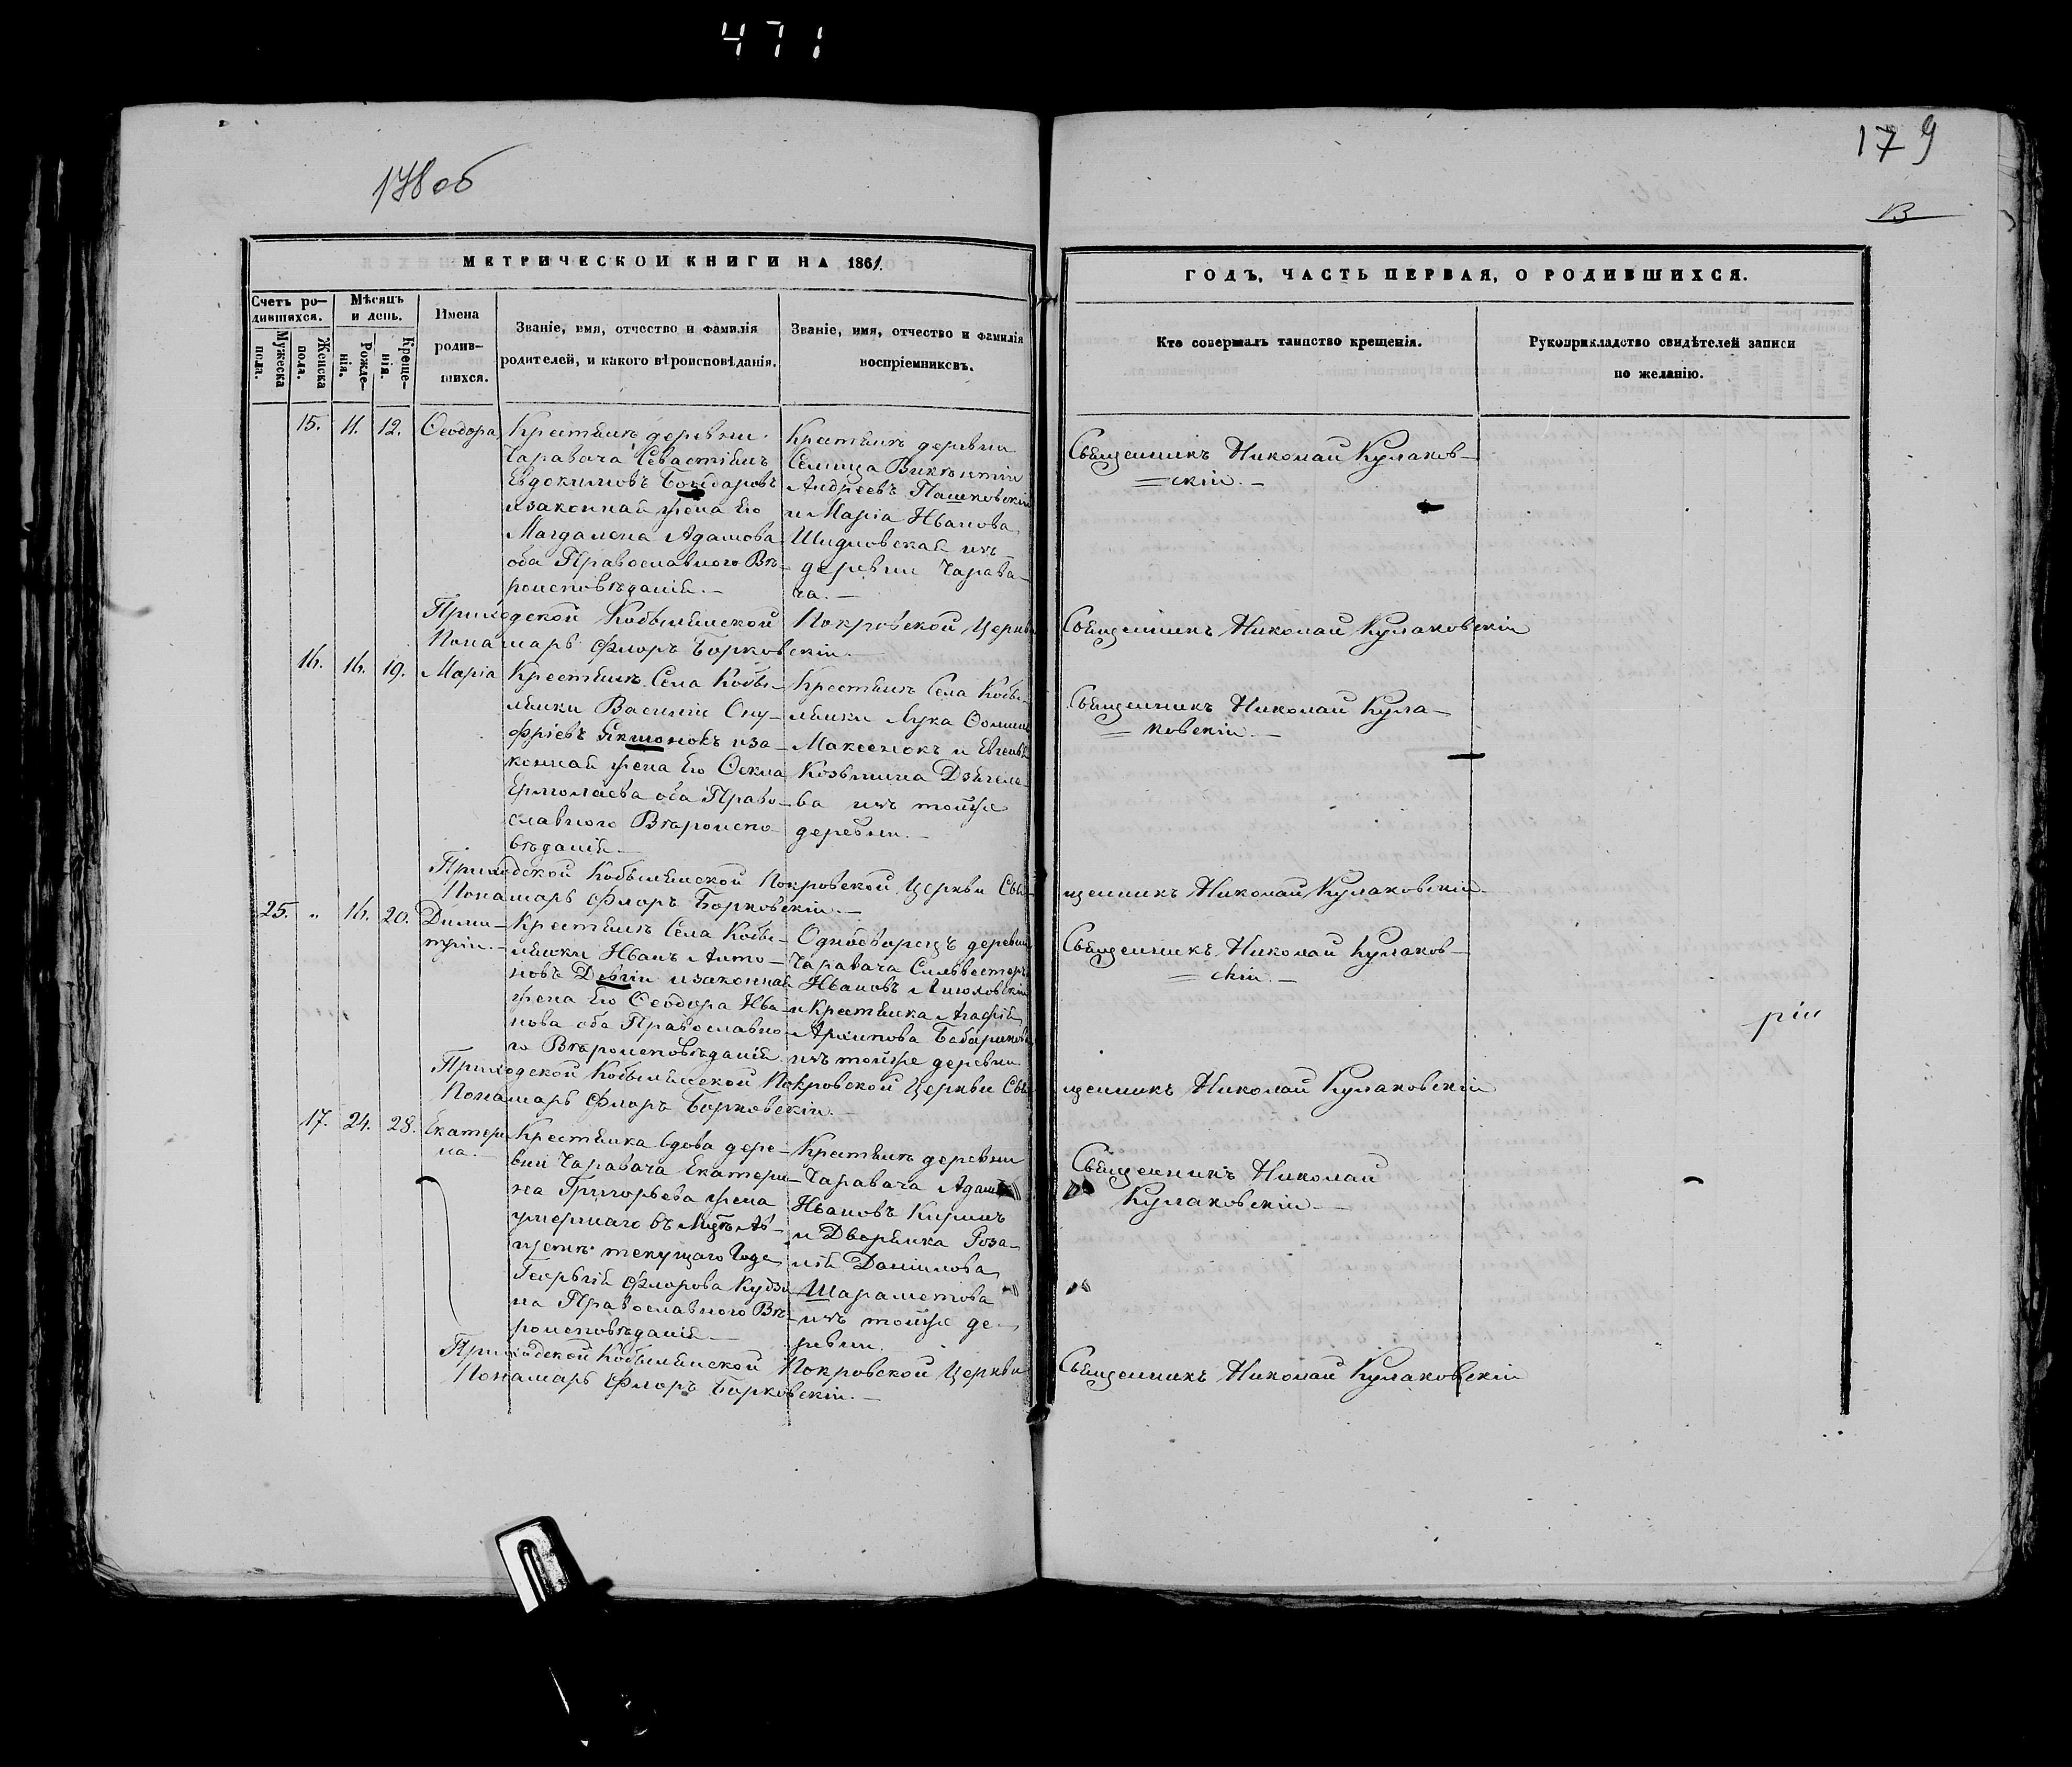 471
178 об
179
13
МЕТРИЧЕСКОЙ КНИГИ НА 1861.
ГОДЪ, ЧАСТЬ ПЕРВАЯ, О РОДИВШИХСЯ.
Счетъ ро-
дившихся.
Мужеска
пола.
Женска
пола.
Мѣсяцъ
и день.
Рожде-
нія.
Креще-
нія.
Имена
родив-
шихся.
Званіе, имя, отчество и фамилія
родителей, и какого вѣроисповѣданія.
Званіе, имя, отчество и фамилія
воспріемниковъ.
Кто совершалъ таинство крещенія.
Рукоприкладство свидѣтелей записи
по желанію.
15. 11. 12. Ѳеодора
Крестьянъ деревни
Чаравача Севастіянъ
Евдокимовъ
и законная жена Его
Магдалена Адамова
оба Православного Вѣ-
роисповѣданія.
Крестьянъ деревни
Селища Викентій
Андреевъ Пашковскій
и Марія Иванова
Шидловская изъ
деревни Чарава-
ча.
Священникъ Николай Кулаков-
скій.
Приходской Кобыльянской Покровской Церкви Священникъ Николай Кулаковскій
Понамарь Флоръ Борковскій.
16. 16. 19. Марія
Крестьянъ Села Кобы-
льники Василій Ону-
фріевъ Якшонокъ и за-
конная жена Его Ѳекла
Ермолаева оба Право-
славного Вѣроиспо-
вѣданія.
Крестьянъ Села Кобы-
льники Лука Ѳоминъ
Максенокъ и
Козьмина
ва изъ тойже
деревни.
Священникъ Николай Кула-
ковскій.
Приходской Кобыльянской Покровской Церкви Священникъ Николай Кулаковскій
Понамарь Флоръ Борковскій.
25. " 16. 20. Дими-
трій.
Крестьянъ Села Кобы-
льники Иванъ Анто-
новъ и законная
жена Его Ѳеодора Ива-
нова оба Православно-
го Вѣроисповѣданія.
Однодворецъ деревни
Чаравача Сильвестръ
Ивановъ
и Крестьянка Агафія
Архипова
изъ тойже деревни.
Священникъ Николай Кулаков-
скій.
рій
Приходской Кобыльянской Покровской Церкви Священникъ Николай Кулаковскій
Понамарь Флоръ Борковскій.
17. 24. 28. Екатери
на.
Крестьянка вдова дере-
вни Чаравача Екатери-
на Григорьева жена
умершаго въ
текущаго Года
Георгій Флорова
на Православного Вѣ-
роисповѣданія.
Крестьянъ деревни
Чаравача Адамъ
Ивановъ
и Дворянка Роза-
лія Даніилова
Шараметова
изъ тойже де-
ревни.
Священникъ Николай
Кулаковскій.
Приходской Кобыльянской Покровской Церкви Священникъ Николай Кулаковскій
Понамарь Флоръ Борковскій.